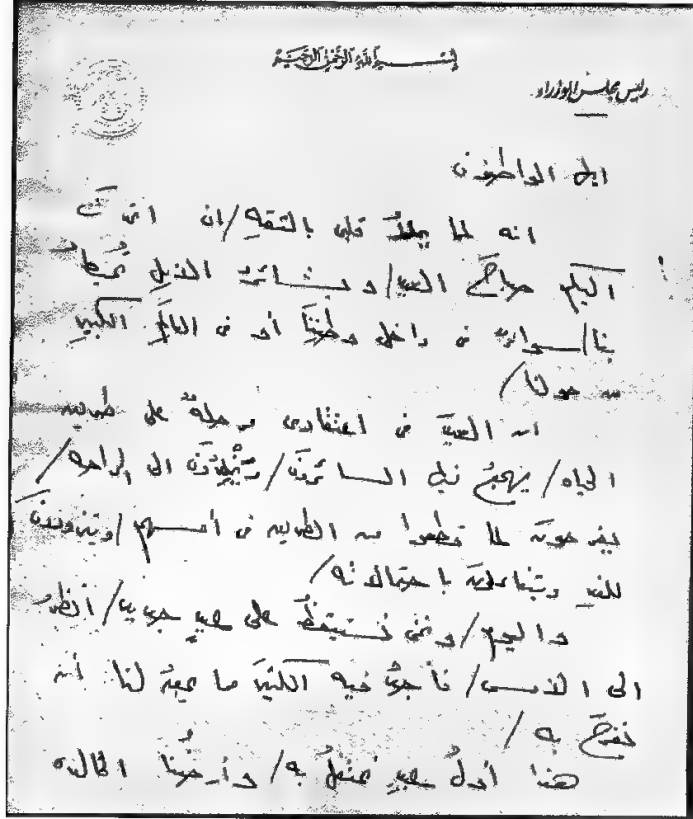 بسم الله الرحمن الرحيم
رئيس مجلس الوزراء
ايها المواطنون
انه لما يملأُ قلبى بالثقةِ / ان اتحدث
اليكم صباحَ العيد / وبشائرُ الخيرِ تُحيطُ
بنا / سواء فى داخل وطنِنَا أو فى العالَمِ الكبيرِ
من حولنا /
ان العيدَ فى اعتقادى مرحلةٌ على طريق
الحياه / يهدأ فيها السائرونَ / ويَخْلِدُونَ الى الراحه /
يفرحون لما قطعوا من الطريق فى أمسهم / ويتزودون
للغد ويتفاءلون باحتمالاته /
واليوم / ونحن نستيقظُ على عيدٍ جديد / أنظرُ
الى الأمس / فأجدُ فيه الكثيرَ ما يحقُ لنا أن
نفرحَ به /
هذا أولُ عيدٍ نحتفلُ به / وأرضُنا الخالده